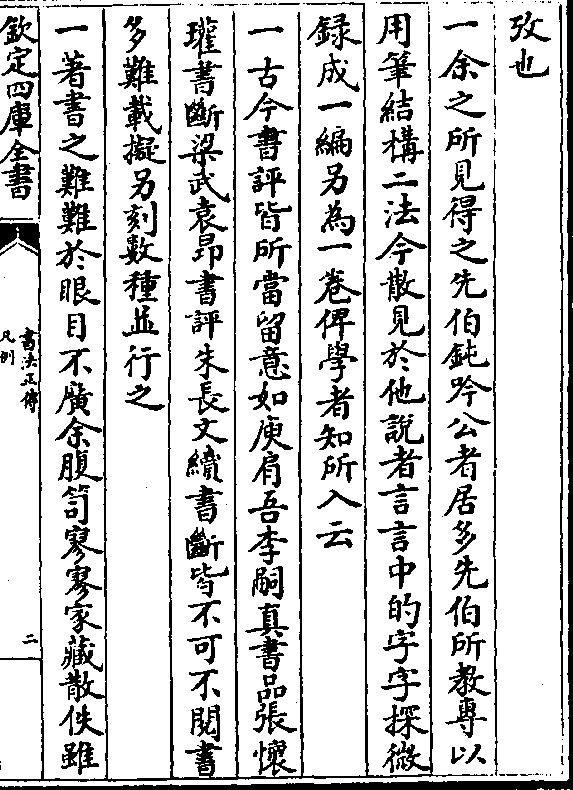 攷也
一余之所見得之先伯鈍吟公者居多先伯所教專以
用筆結構二法今散見於他說者言言中的字字探微
録成一編另為一卷俾學者知所入云
一古今書評皆所當留意如庾肩吾李嗣真書品張懷
瓘書斷梁武袁昂書評朱長文續書斷皆不可不閱書
多難載擬另刻數種並行之
一著書之難難於眼目不廣余腹笥寥寥家藏散佚雖
欽定四庫全書
書法正傳
凡例
二